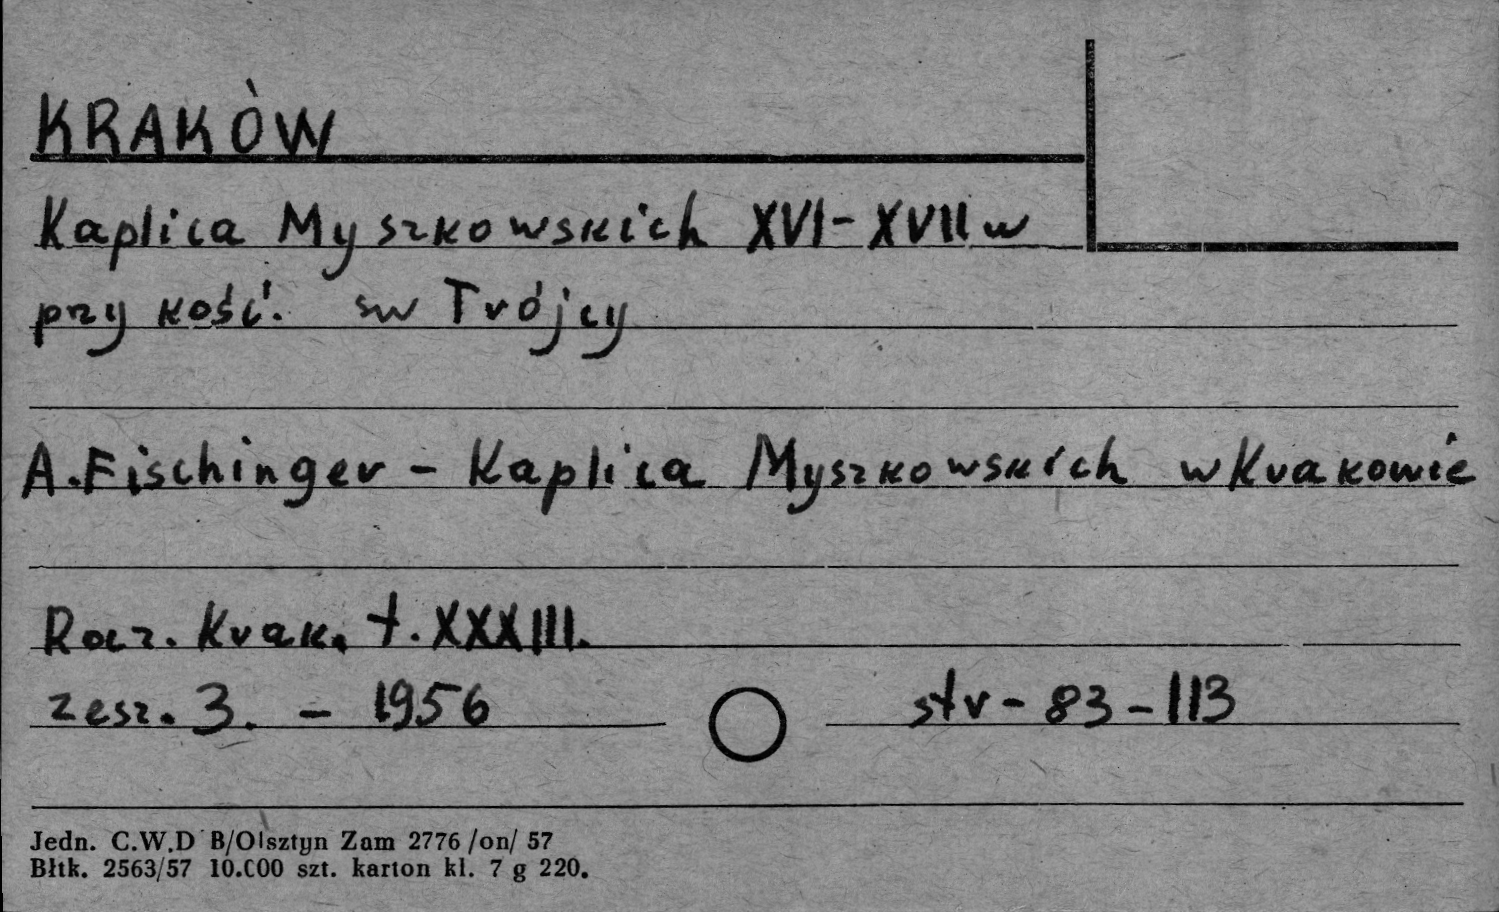 KRAKÓW
Kaplica Myszkowskich XVI-XVII w
przy kość. św Trójcy
A. Fischinger - Kaplica Myszkowskich w Krakowie
Rocz. Krak. t. XXXIII.
zesz. 3. - 1956 str - 83-113
Jedn. C.W.D B/Olsztyn Zam 2776 /on/ 57
Błtk. 2563/57 10.000 szt. karton kl. 7 g 220.